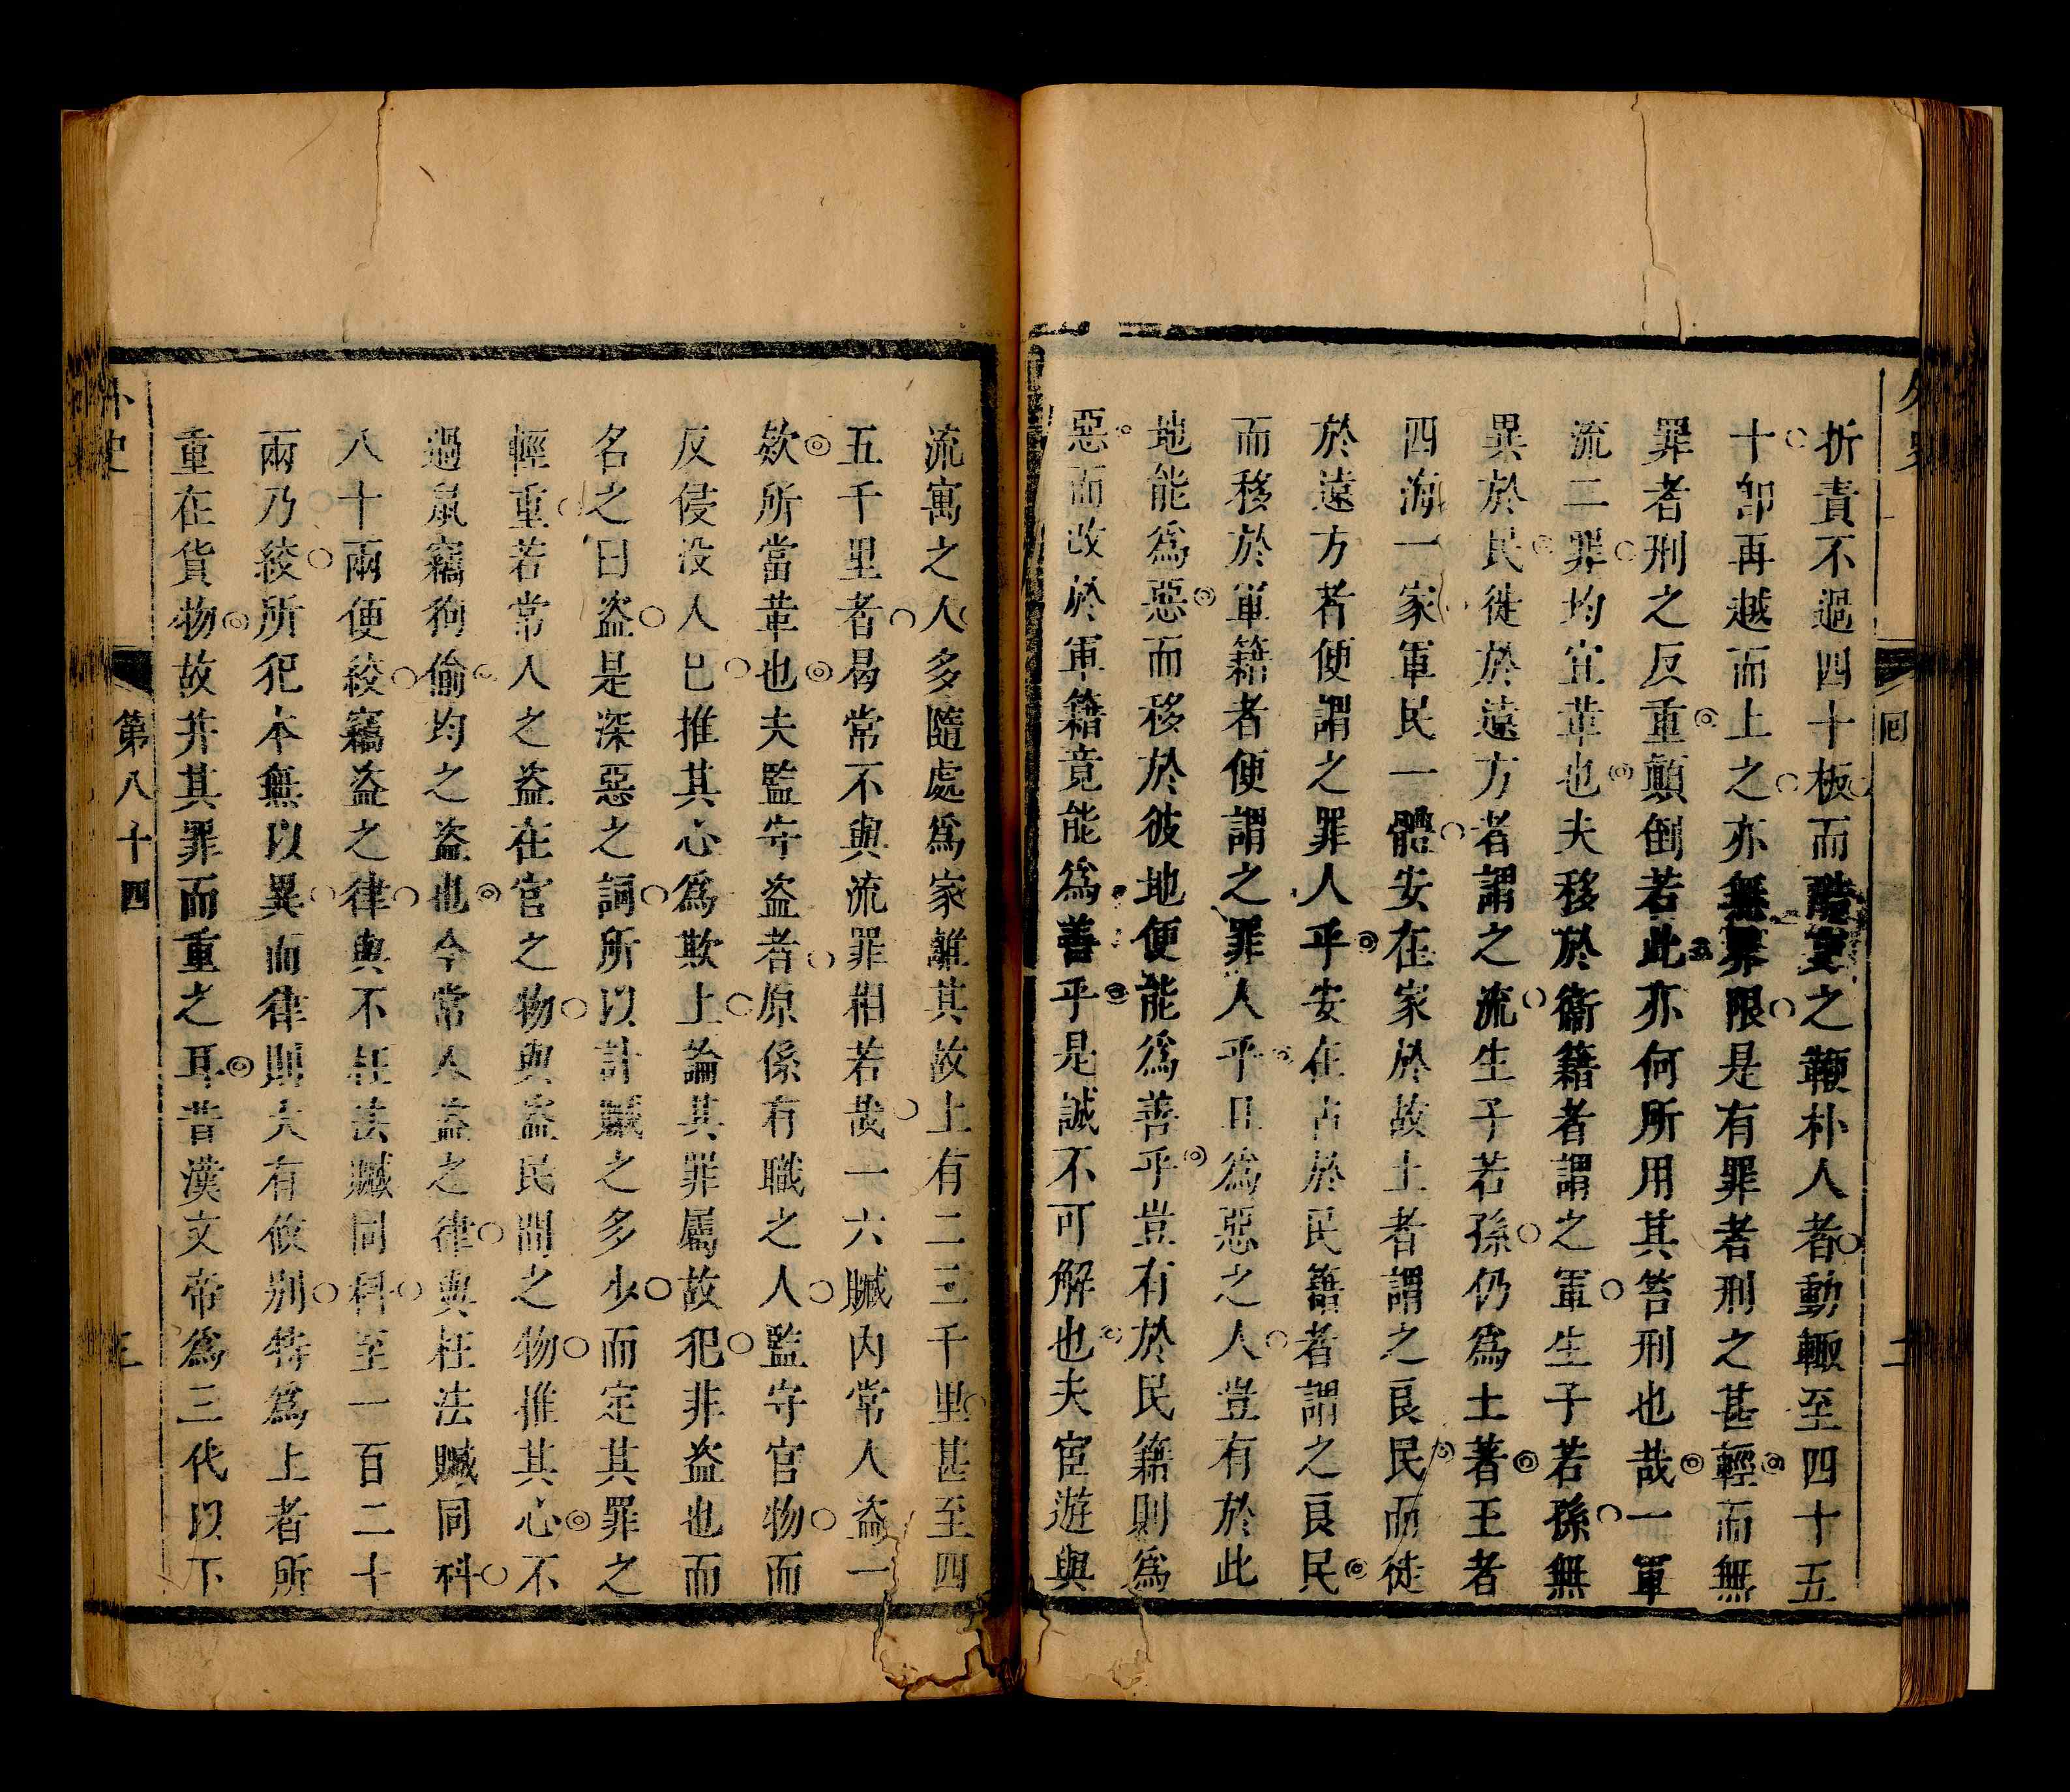 外史
回
折責不過四十板而酷吏之鞭朴人者動輒至四十五
十卽再越而上之亦無界限是有罪者刑之甚輕而無
罪者刑之反重顛倒若此亦何所用其笞刑也哉一軍
流二罪均宜革也夫移於衞籍者謂之軍生子若孫無
異於民徙於遠方者謂之流生子若孫仍爲土著王者
四海一家軍民一體安在家於故土者謂之良民而徙
於遠方者便謂之罪人乎安在占於民籍者謂之良民
而移於軍籍者便謂之罪人乎且爲惡之人豈有於此
地能爲惡而移於彼地便能爲善乎豈有於民籍則爲
惡而改於軍籍竟能爲善乎是誠不可解也夫宦遊與
流寓之人多隨處爲家離其故土有二三千里甚至四
五千里者曷常不與流罪相若哉一六贓內常人盜一
欵所當革也夫監守盜者原係有職之人監守官物而
反侵没人已推其心爲欺上論其罪屬故犯非盜也而
名之曰盜是深惡之詞所以計贓之多少而定其罪之
輕重若常人之盜在官之物與盜民間之物推其心不
過鼠竊狗偷均之盜也今常人盜之律與枉法贓同科
八十兩便絞竊盜之律與不枉法贓同科至一百二十
兩乃絞所犯本無以異而律則大有攸别特爲上者所
重在貨物故幷其罪而重之耳昔漢文帝爲三代以下
外史
第八十四
三